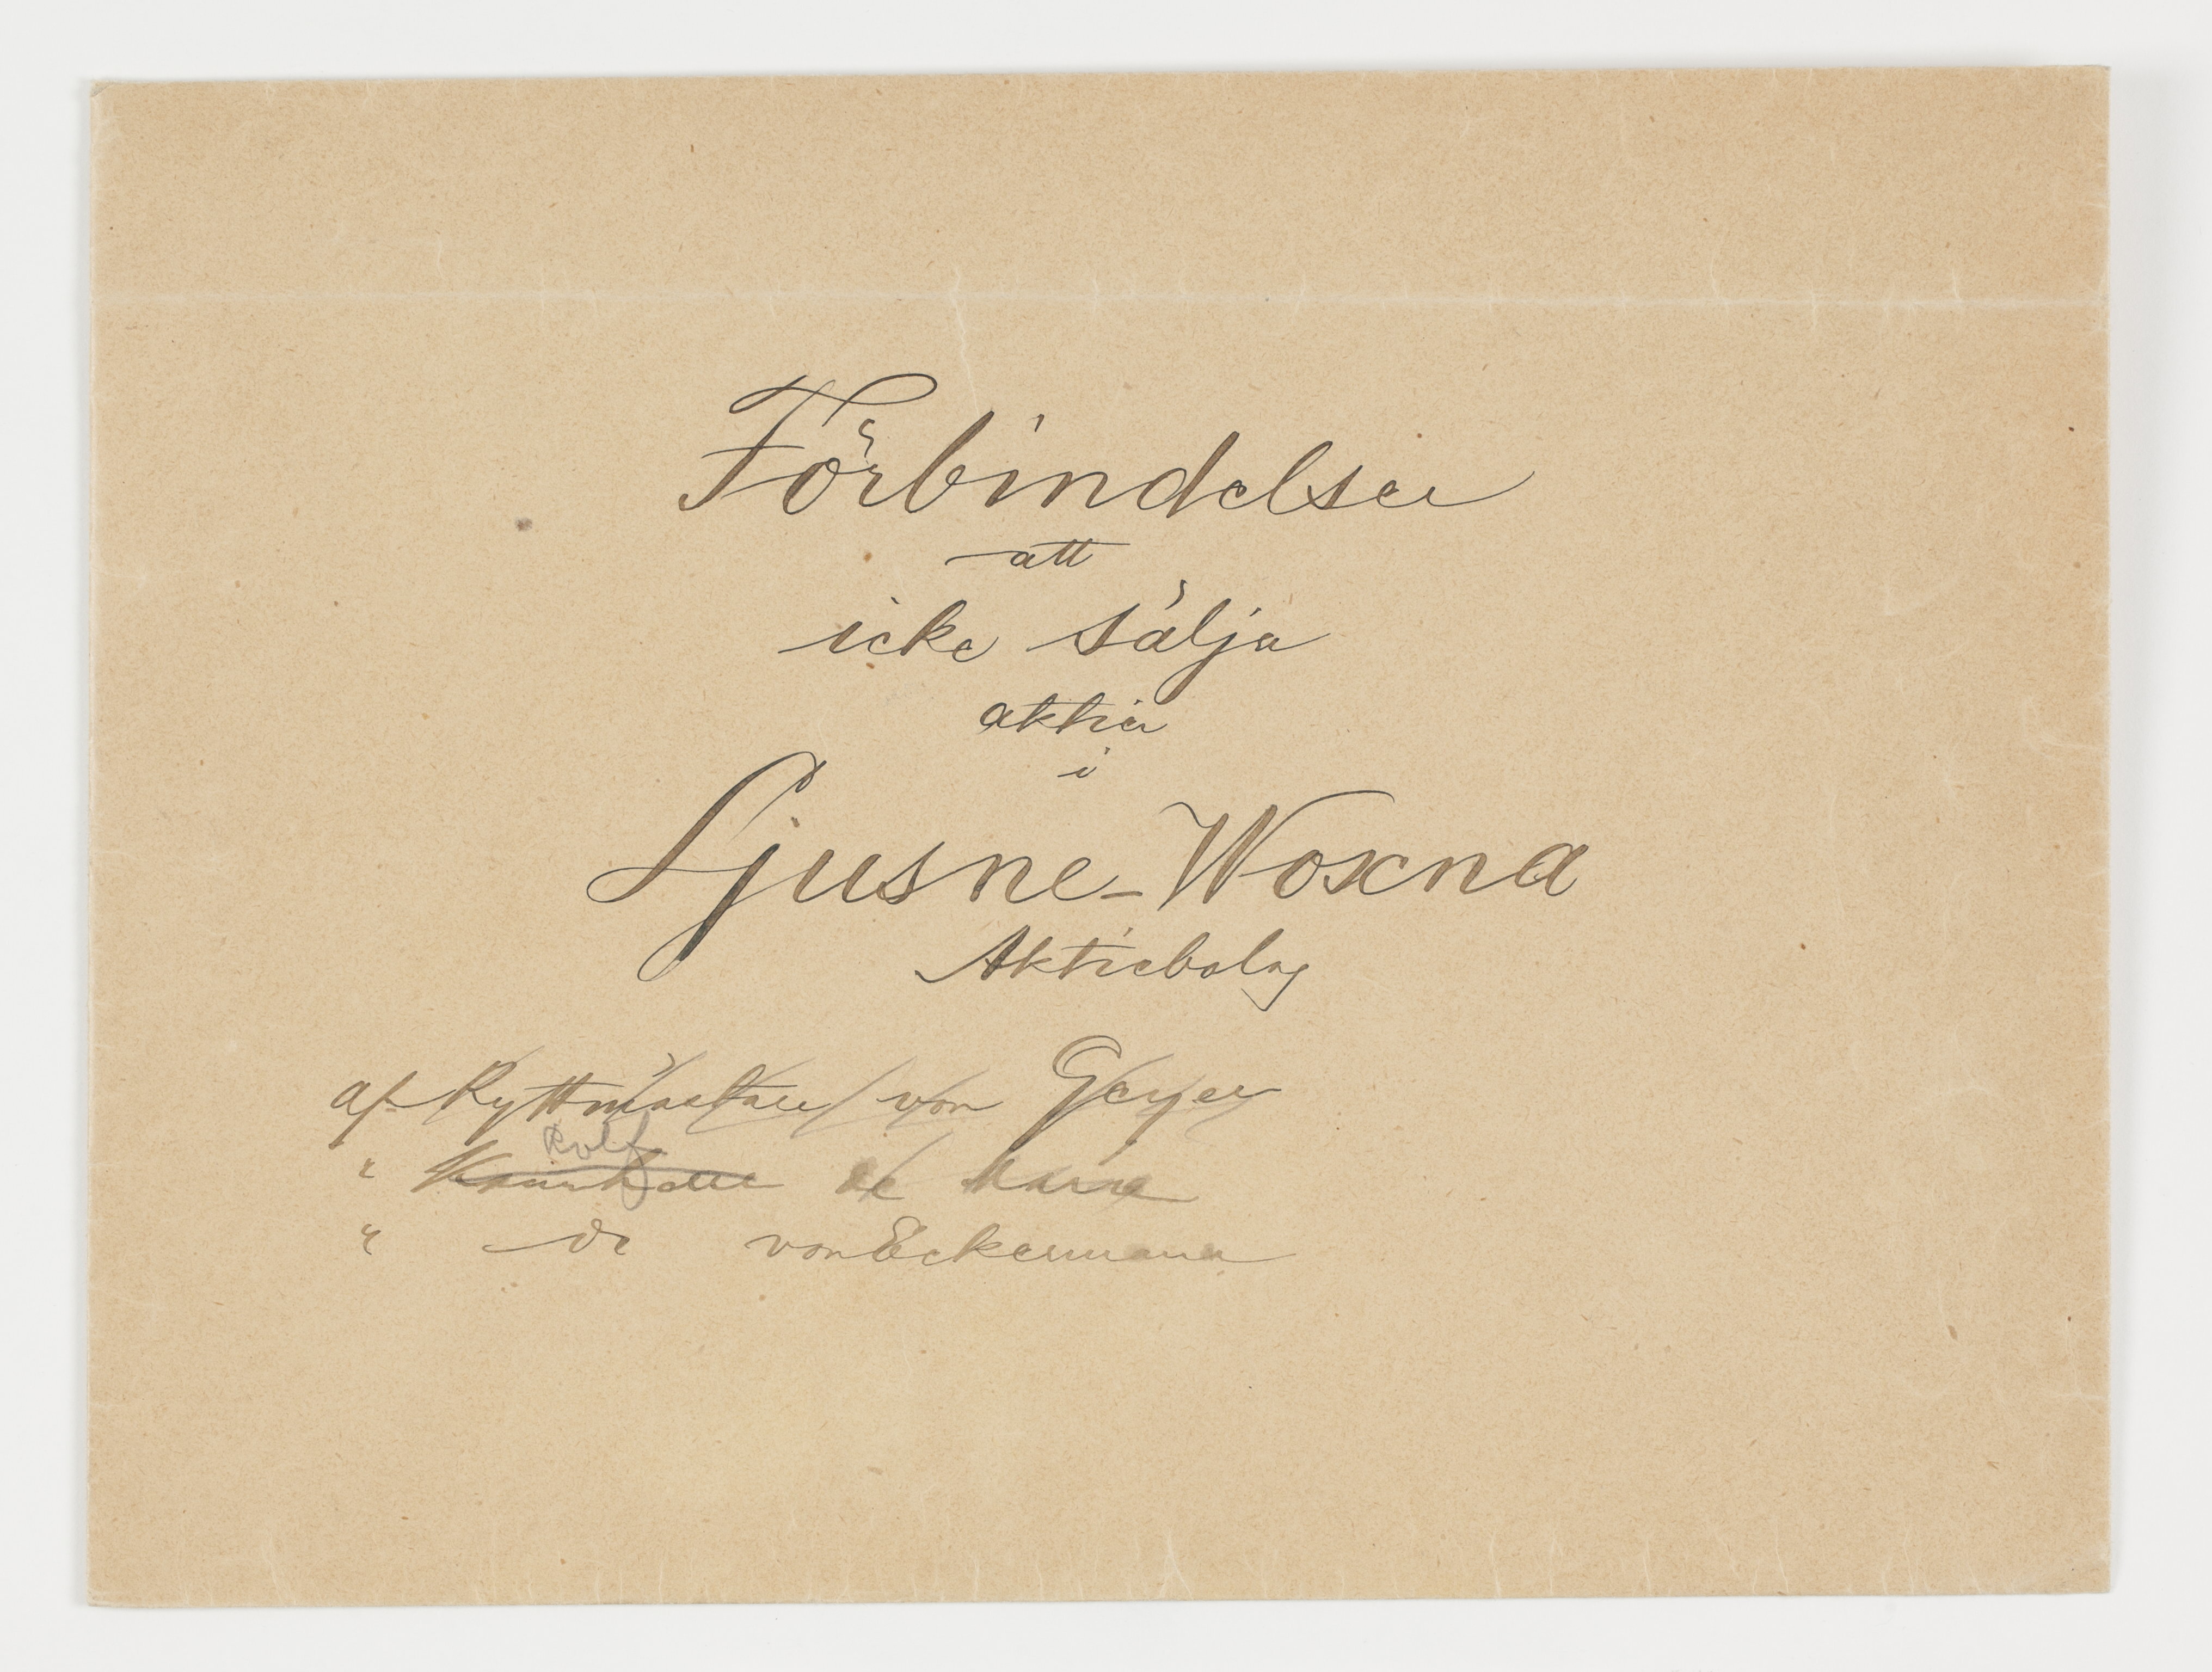 Förbindelser
att
icke sälja
aktier
i
Ljusne-Woxna
Aktiebolag
af Ryttmästare von Geyer
Rolf
" de Maré
" do von Eckermann